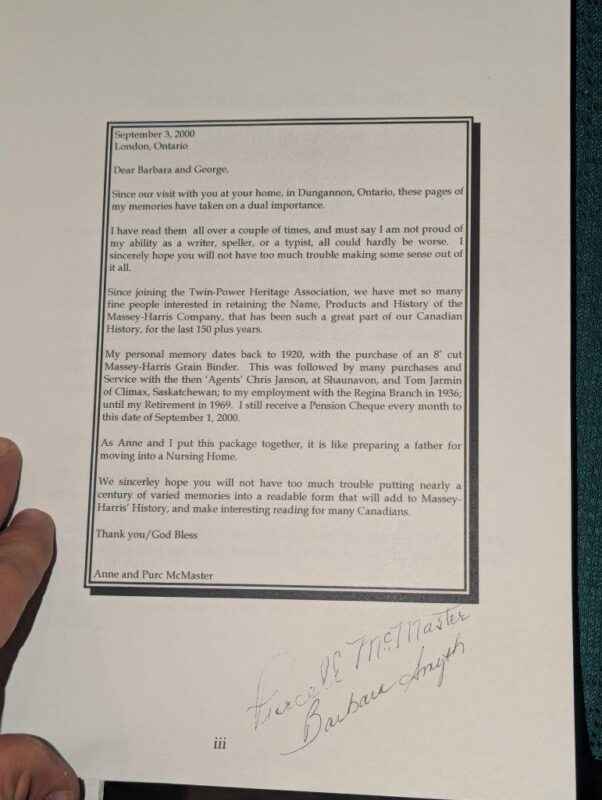 September 3, 2000
London, Ontario
Dear Barbara and George,
Since our visit with you at your home, in Dungannon, Ontario, these pages of
my memories have taken on a dual importance.
I have read them all over a couple of times, and must say I am not proud of
my ability as a writer, speller, or a typist, all could hardly be worse. I
sincerely hope you will not have too much trouble making some sense out of
it all.
Since joining the Twin-Power Heritage Association, we have met so many
fine people interested in retaining the Name, Products and History of the
Massey-Harris Company, that has been such a great part of our Canadian
History, for the last 150 plus years.
My personal memory dates back to 1920, with the purchase of an 8' cut
Massey-Harris Grain Binder. This was followed by many purchases and
Service with the then 'Agents' Chris Janson, at Shaunavon, and Tom Jarmin
of Climax, Saskatchewan; to my employment with the Regina Branch in 1936;
until my Retirement in 1969. I still receive a Pension Cheque every month to
this date of September 1, 2000.
As Anne and I put this package together, it is like preparing a father for
moving into a Nursing Home.
We sincerley hope you will not have too much trouble putting nearly a
century of varied memories into a readable form that will add to Massey-
Harris' History, and make interesting reading for many Canadians.
Thank you/God Bless
Anne and Purc McMaster
McMaster
Barbara Smyth
iii